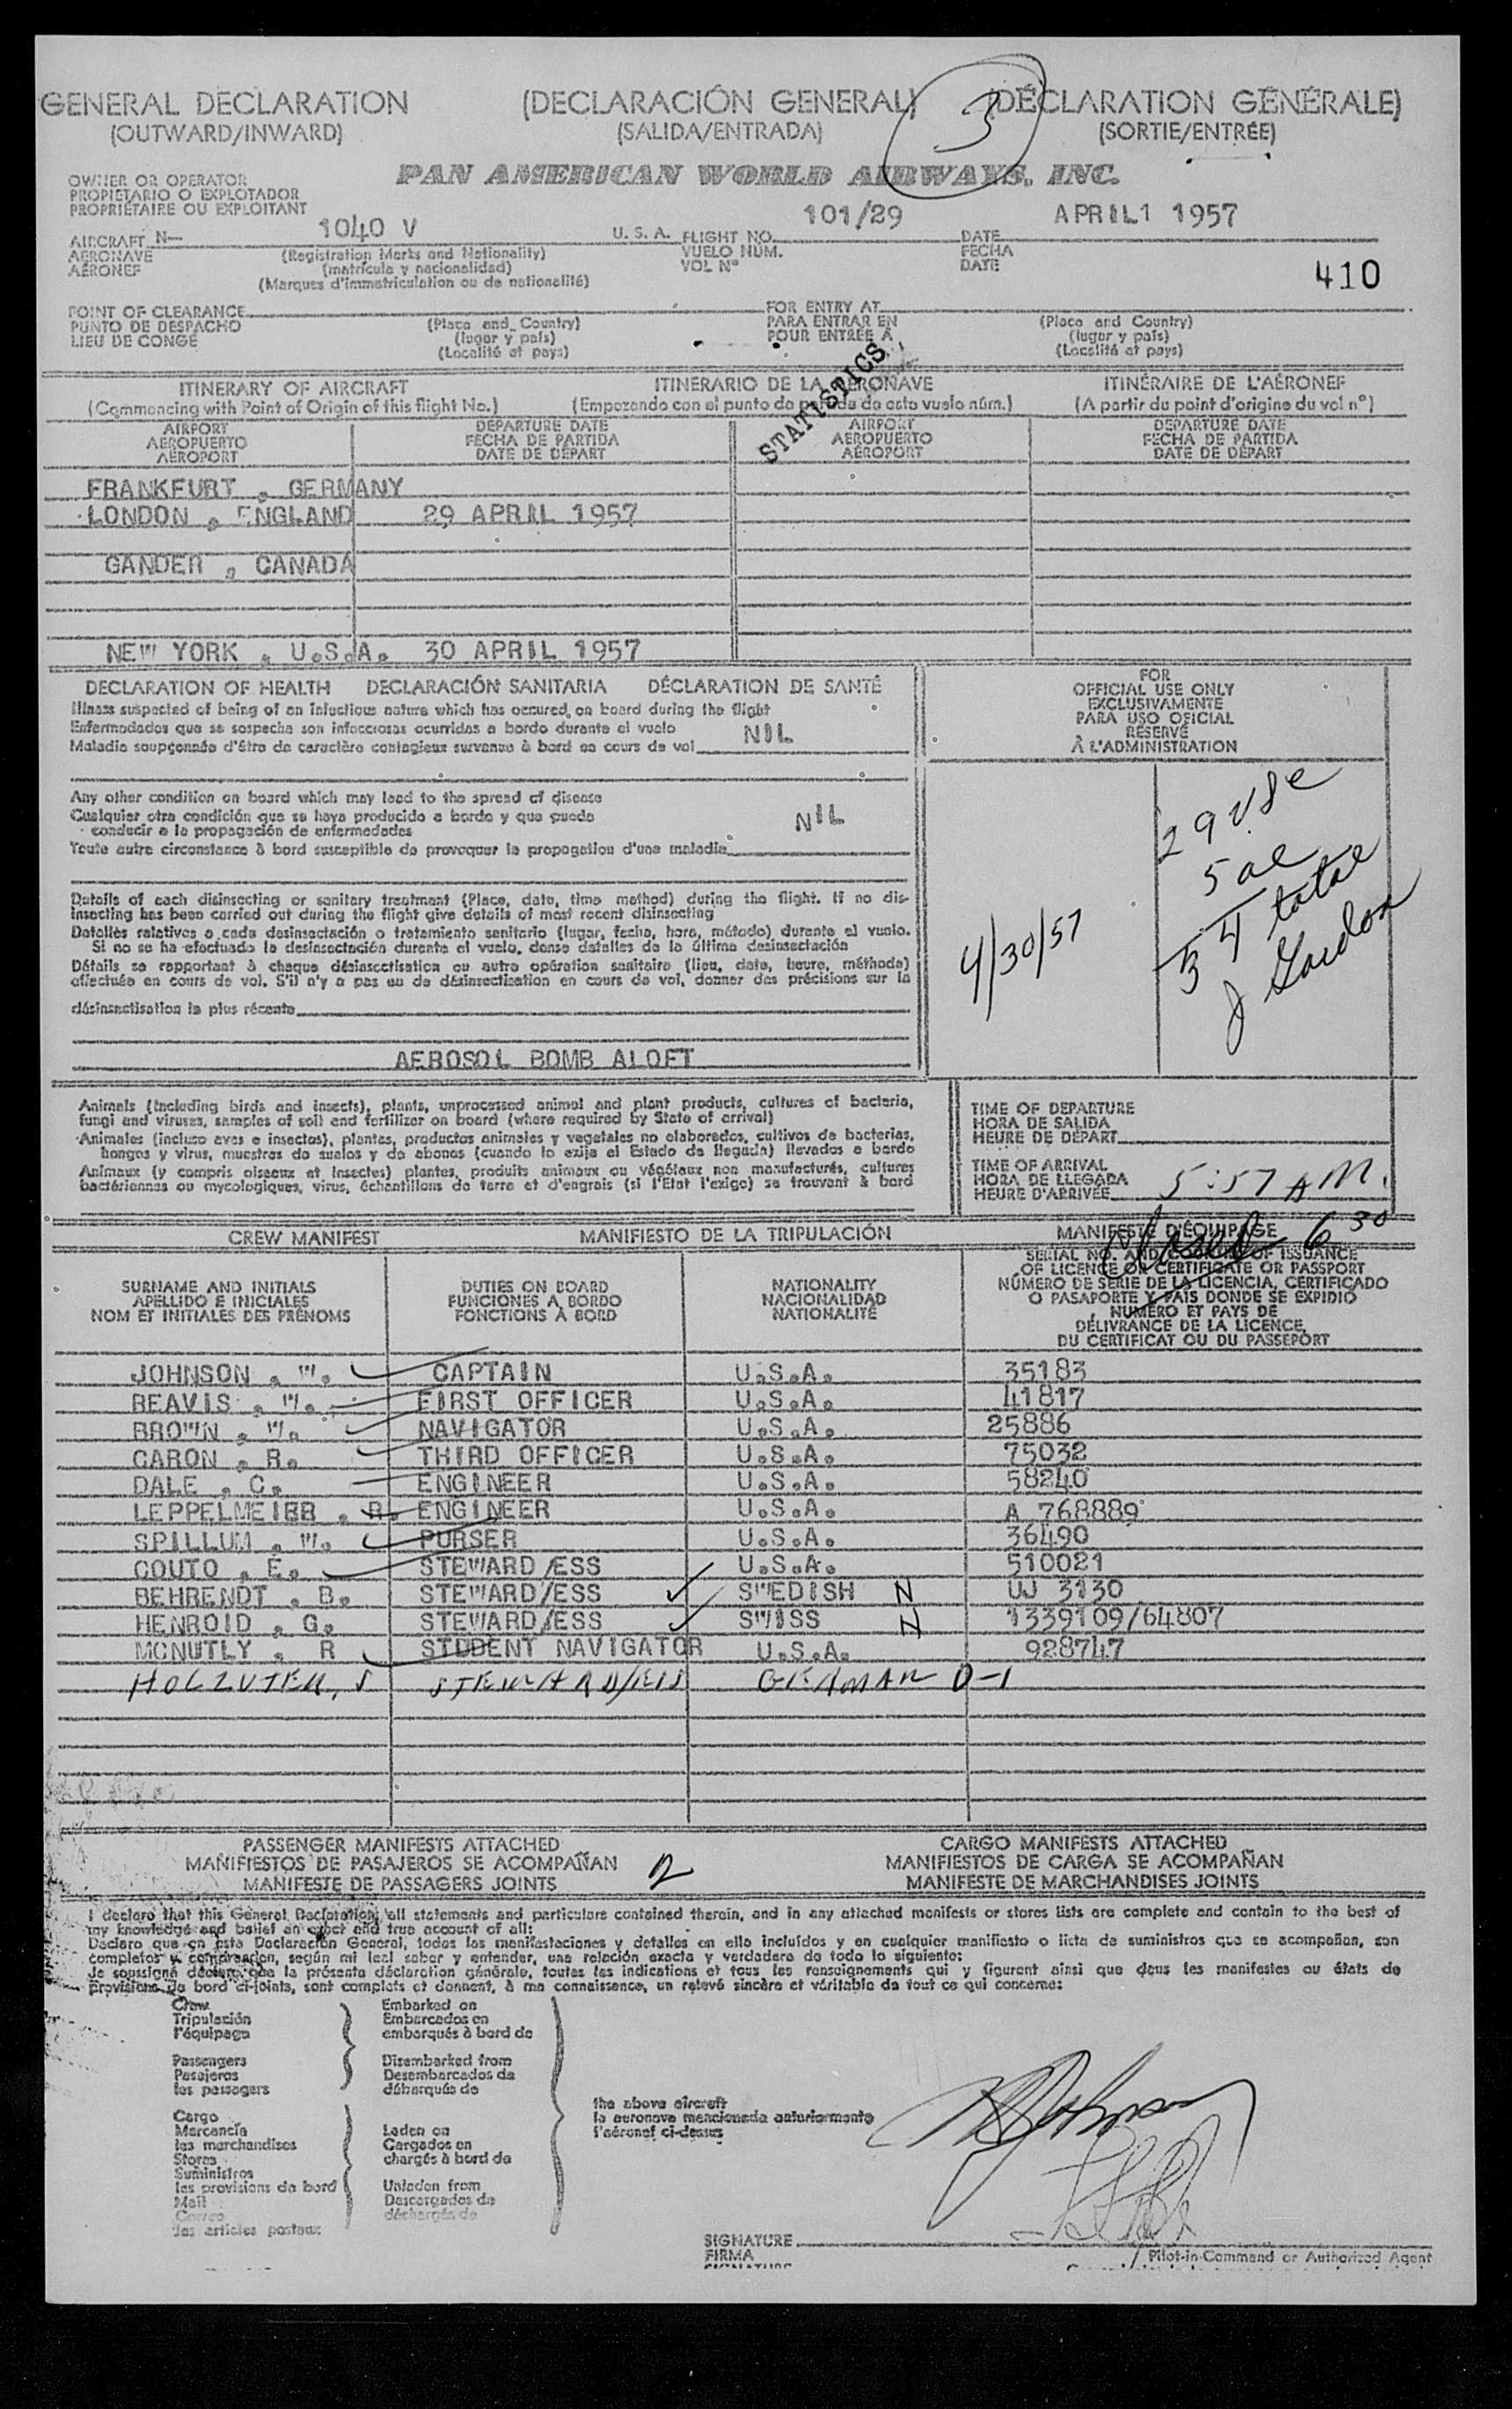 GENERAL DECLARATION (DECLARACIÓN GENERAL) (DÉCLARATION GÉNÉRALE)
(OUTWARD/INWARD) (SALIDA/ENTRADA) (SORTIE/ENTRÉE)
3
PAN AMERICAN WORLD AIRWAYS, INC.
OWNER OR OPERATOR
PROPIETARIO O EXPLOTADOR
PROPRIÉTAIRE OU EXPLOITANT
AIRCRAFT N— 1040 V U. S. A. FLIGHT NO. 101/29 DATE APRIL1 1957
AERONAVE (Registration Marks and Nationality) VUELO NÚM. FECHA
AÉRONEF (matrícula y nacionalidad) VOL N° DATE
(Marques d'immatriculation ou de nationalité)
410
POINT OF CLEARANCE FOR ENTRY AT
PUNTO DE DESPACHO (Place and Country) PARA ENTRAR EN (Place and Country)
LIEU DE CONGÉ (lugar y país) POUR ENTRÉE À (lugar y país)
(Localité et pays) (Localité et pays)
STATISTICS
ITINERARY OF AIRCRAFT ITINERARIO DE LA AERONAVE ITINÉRAIRE DE L'AÉRONEF
(Commencing with Point of Origin of this flight No.) (Empezando con el punto de partida de este vuelo núm.) (A partir du point d'origine du vol n°)
AIRPORT DEPARTURE DATE AIRPORT DEPARTURE DATE
AEROPUERTO FECHA DE PARTIDA AEROPUERTO FECHA DE PARTIDA
AÉROPORT DATE DE DÉPART AÉROPORT DATE DE DÉPART
FRANKFURT , GERMANY
LONDON , ENGLAND 29 APRIL 1957
GANDER , CANADA
NEW YORK , U.S.A. 30 APRIL 1957
DECLARATION OF HEALTH DECLARACIÓN SANITARIA DÉCLARATION DE SANTÉ
Illness suspected of being of an infectious nature which has occured on board during the flight
Enfermedades que se sospecha son infecciosas ocurridas a bordo durante el vuelo
Maladie soupçonnée d'être de caractère contagieux survenue à bord en cours de vol NIL
Any other condition on board which may lead to the spread of disease
Cualquier otra condición que se haya producido a bordo y que puede
conducir a la propagación de enfermedades NIL
Toute autre circonstance à bord susceptible de provoquer la propagation d'une maladie
Details of each disinsecting or sanitary treatment (Place, date, time method) during the flight. If no dis-
insecting has been carried out during the flight give details of most recent disinsecting
Detalles relativos a cada desinsectación o tratamiento sanitario (lugar, fecha, hora, método) durante el vuelo.
Si no se ha efectuado la desinsectación durante el vuelo, dense detalles de la última desinsectación
Détails se rapportant à chaque désinsectisation ou autre opération sanitaire (lieu, date, heure, méthode)
effectuée en cours de vol. S'il n'y a pas eu de désinsectisation en cours de vol, donner des précisions sur la
désinsectisation la plus récente
AEROSOL BOMB ALOFT
FOR
OFFICIAL USE ONLY
EXCLUSIVAMENTE
PARA USO OFICIAL
RÉSERVÉ
À L'ADMINISTRATION
4/30/57
29 USC
5 al
34 total
Animals (including birds and insects), plants, unprocessed animal and plant products, cultures of bacteria,
fungi and viruses, samples of soil and fertilizer on board (where required by State of arrival)
Animales (incluso aves e insectos), plantas, productos animales y vegetales no elaborados, cultivos de bacterias,
hongos y virus, muestras de suelos y de abonos (cuando lo exija el Estado de llegada) llevados a bordo
Animaux (y compris oiseaux et insectes) plantes, produits animaux ou végétaux non manufacturés, cultures
bactériennes ou mycologiques, virus, échantillons de terre et d'engrais (si l'Etat l'exige) se trouvant à bord
TIME OF DEPARTURE
HORA DE SALIDA
HEURE DE DÉPART
TIME OF ARRIVAL
HORA DE LLEGADA
HEURE D'ARRIVÉE 5:57 AM.
6 30
CREW MANIFEST MANIFIESTO DE LA TRIPULACIÓN MANIFESTE D'ÉQUIPAGE
SURNAME AND INITIALS
APELLIDO E INICIALES
NOM ET INITIALES DES PRÉNOMS
DUTIES ON BOARD
FUNCIONES A BORDO
FONCTIONS À BORD
NATIONALITY
NACIONALIDAD
NATIONALITÉ
SERIAL NO. AND COUNTRY OF ISSUANCE
OF LICENCE OR CERTIFICATE OR PASSPORT
NÚMERO DE SERIE DE LA LICENCIA, CERTIFICADO
O PASAPORTE Y PAÍS DONDE SE EXPIDIÓ
NUMÉRO ET PAYS DE
DÉLIVRANCE DE LA LICENCE,
DU CERTIFICAT OU DU PASSEPORT
JOHNSON , W. CAPTAIN U.S.A. 35183
BEAVIS , W. FIRST OFFICER U.S.A. 41817
BROWN , W. NAVIGATOR U.S.A. 25886
CARON , R. THIRD OFFICER U.S.A. 75032
DALE , C. ENGINEER U.S.A. 58240
LEPPELMEIER , R. ENGINEER U.S.A. A 768889
SPILLUM , W. PURSER U.S.A. 36490
COUTO , E. STEWARD/ESS U.S.A. 510021
BEHRENDT , B. STEWARD/ESS SWEDISH N UJ 3130
HENROID , G. STEWARD/ESS SWISS N 1339109/64807
MCNUTLY , R STUDENT NAVIGATOR U.S.A. 928747
HOLZUTER, S STEWARD/ESS GERMAN D-1
PASSENGER MANIFESTS ATTACHED CARGO MANIFESTS ATTACHED
MANIFIESTOS DE PASAJEROS SE ACOMPAÑAN 2 MANIFIESTOS DE CARGA SE ACOMPAÑAN
MANIFESTE DE PASSAGERS JOINTS MANIFESTE DE MARCHANDISES JOINTS
I declare that this General Declaration, all statements and particulars contained therein, and in any attached manifests or stores lists are complete and contain to the best of
my knowledge and belief an exact and true account of all:
Declaro que en esta Declaración General, todas las manifestaciones y detalles en ella incluídos y en cualquier manifiesto o lista de suministros que se acompañan, son
completos y comprenden, según mi leal saber y entender, una relación exacta y verdadera de todo lo siguiente:
Je soussigné déclare que la présente déclaration générale, toutes les indications et tous les renseignements qui y figurent ainsi que dans les manifestes ou états de
provisions de bord ci-joints, sont complets et donnent, à ma connaissance, un relevé sincère et véritable de tout ce qui concerne:
Crew Embarked on
Tripulación Embarcados en
l'équipage embarqués à bord de
Passengers Disembarked from
Pasajeros Desembarcados de
les passagers débarqués de
the above aircraft
la aeronave mencionada anteriormente
l'aéronef ci-dessus
Cargo
Mercancía Laden on
les marchandises Cargados en
Stores chargés à bord de
Suministros
les provisions de bord Unladen from
Mail Descargados de
Correo déchargés de
les articles postaux
SIGNATURE
FIRMA Pilot-in-Command or Authorized Agent
SIGNATURE